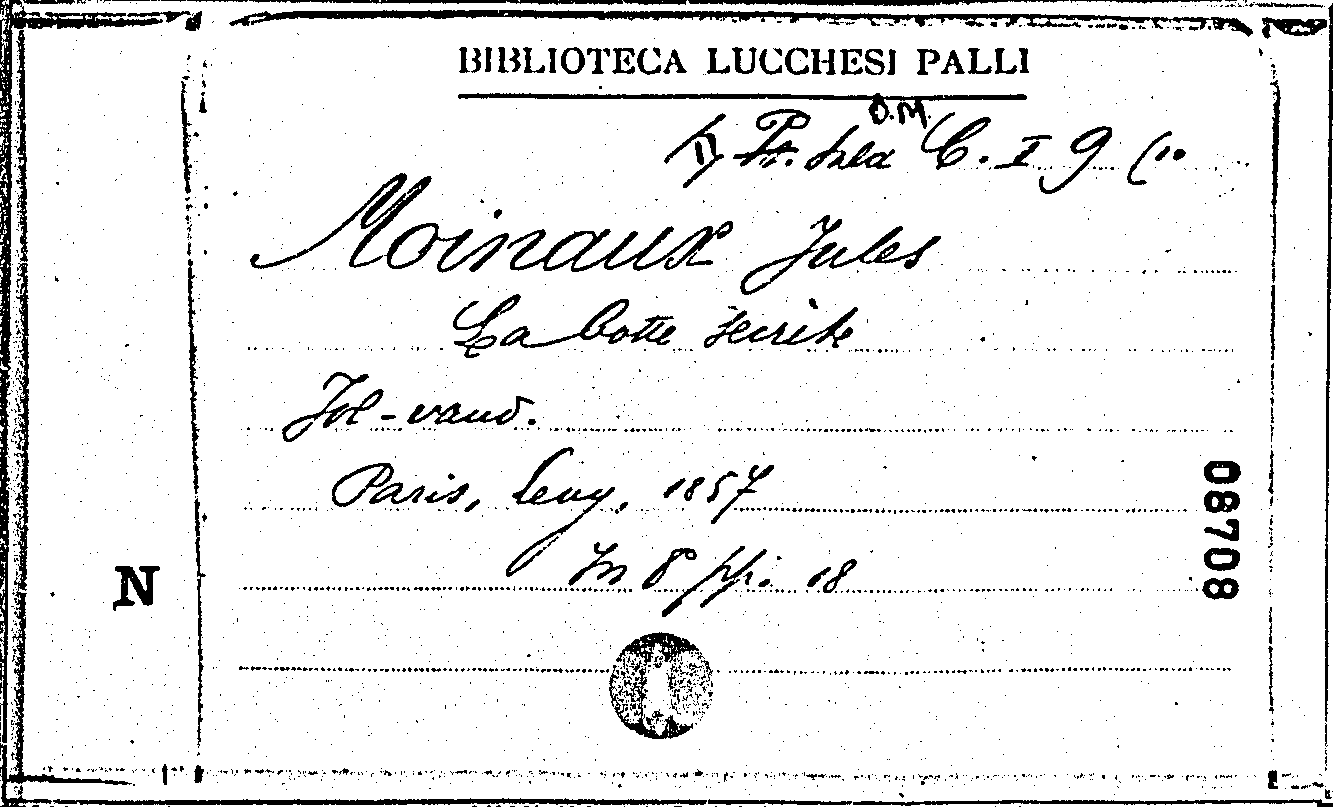 BIBLIOTECA LUCCHESI PALLI
O.M.
C. I 9 (10
Moinaux Jules
La botte secrète
Fol-vaud.
Paris, Levy, 1857
In 8° pp. 18
N
08708